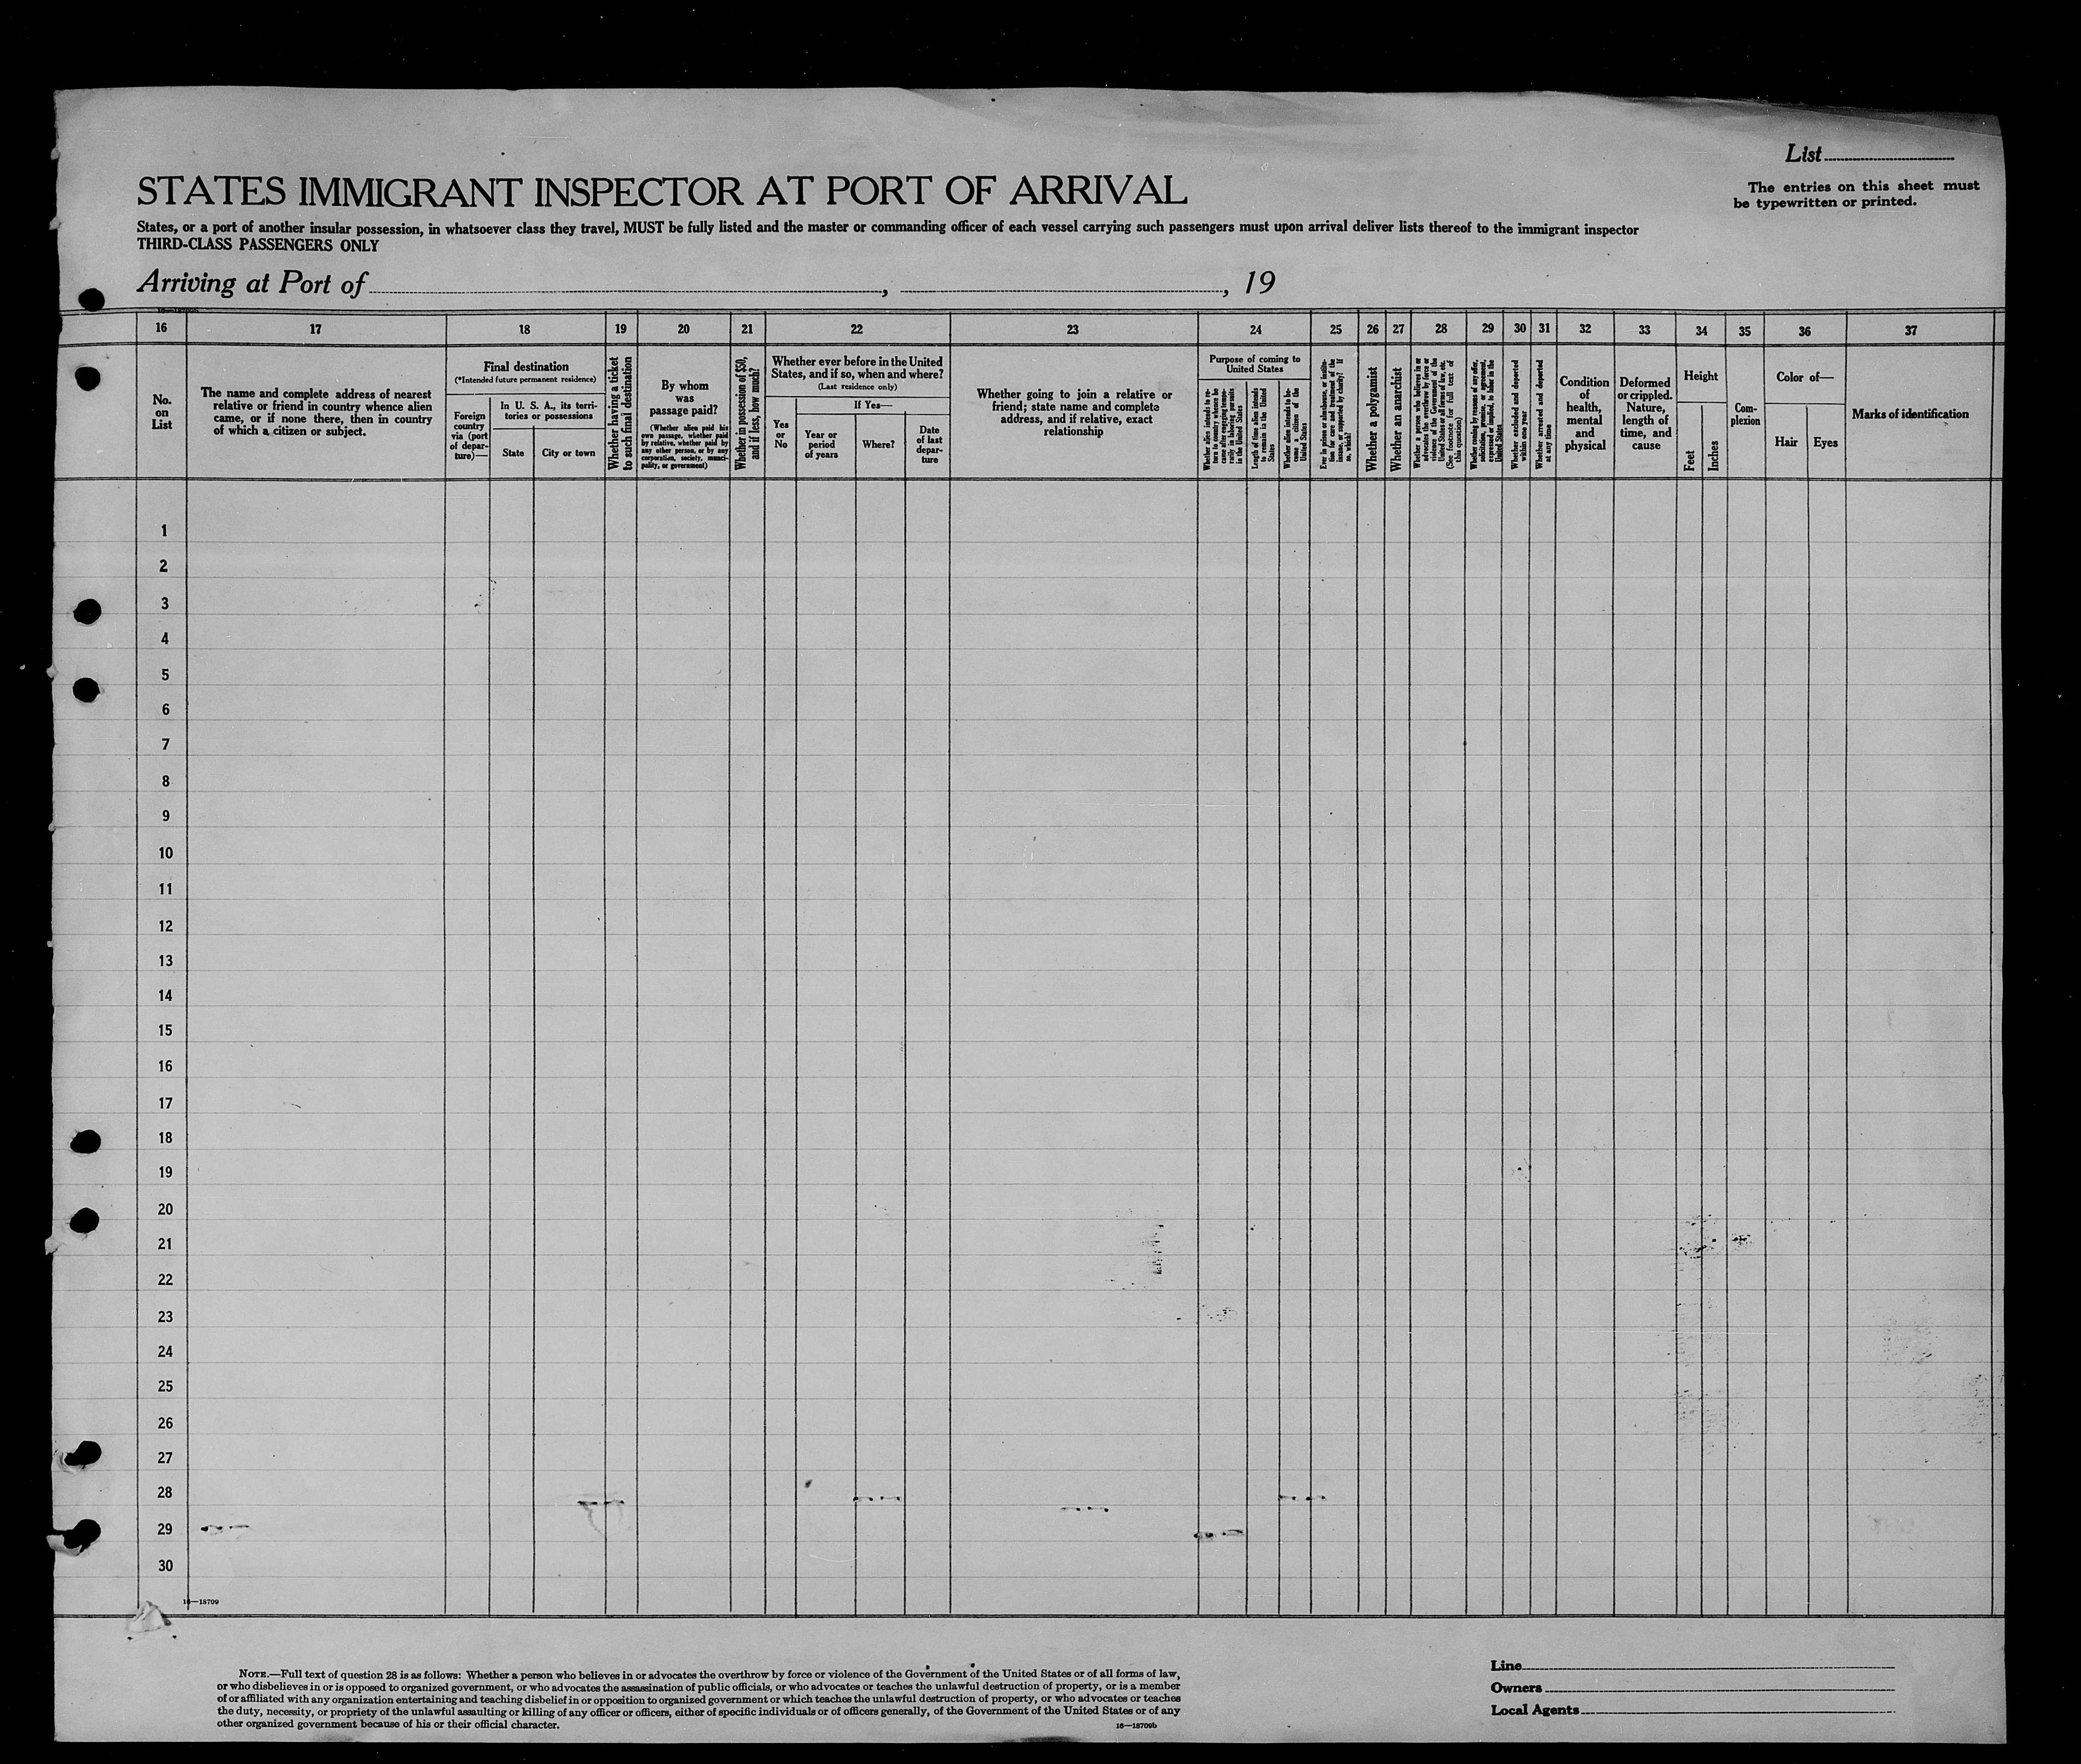 List
The entries on this sheet must
be typewritten or printed.
STATES IMMIGRANT INSPECTOR AT PORT OF ARRIVAL
States, or a port of another insular possession, in whatsoever class they travel, MUST be fully listed and the master or commanding officer of each vessel carrying such passengers must upon arrival deliver lists thereof to the immigrant inspector
THIRD-CLASS PASSENGERS ONLY
Arriving at Port of , , 19
16 17 18 19 20 21 22 23 24 25 26 27 28 29 30 31 32 33 34 35 36 37
No.
on
List
The name and complete address of nearest
relative or friend in country whence alien
came, or if none there, then in country
of which a citizen or subject.
Final destination
(*Intended future permanent residence)
Foreign
country
via (port
of depar-
ture)—
In U. S. A., its terri-
tories or possessions
State
City or town
Whether having a ticket
to such final destination
By whom
was
passage paid?
(Whether alien paid his
own passage, whether paid
by relative, whether paid by
any other person, or by any
corporation, society, munici-
pality, or government)
Whether in possession of $50,
and if less, how much?
Whether ever before in the United
States, and if so, when and where?
(Last residence only)
Yes
or
No
If Yes—
Year or
period
of years
Where?
Date
of last
depar-
ture
Whether going to join a relative or
friend; state name and complete
address, and if relative, exact
relationship
Purpose of coming to
United States
Whether alien intends to re-
turn to country whence he
came after engaging tempo-
rarily in laboring pursuits
in the United States
Length of time alien intends
to remain in the United
States
Whether alien intends to be-
come a citizen of the
United States
Ever in prison or almshouse, or institu-
tion for care and treatment of the
insane, or supported by charity? If
so, which?
Whether a polygamist
Whether an anarchist
Whether a person who believes in or
advocates the overthrow by force or
violence of the Government of the
United States or all forms of law, etc.
(See footnote for full text of
this question)
Whether coming by reasons of any offer,
solicitation, promise, or agreement,
expressed or implied, to labor in the
United States
Whether excluded and deported
within one year
Whether arrested and deported
at any time
Condition
of
health,
mental
and
physical
Deformed
or crippled.
Nature,
length of
time, and
cause
Height
Feet
Inches
Com-
plexion
Color of—
Hair
Eyes
Marks of identification
1
2
3
4
5
6
7
8
9
10
11
12
13
14
15
16
17
18
19
20
21
22
23
24
25
26
27
28
29
30
16—18709
NOTE.—Full text of question 28 is as follows: Whether a person who believes in or advocates the overthrow by force or violence of the Government of the United States or of all forms of law,
or who disbelieves in or is opposed to organized government, or who advocates the assassination of public officials, or who advocates or teaches the unlawful destruction of property, or is a member
of or affiliated with any organization entertaining and teaching disbelief in or opposition to organized government or which teaches the unlawful destruction of property, or who advocates or teaches
the duty, necessity, or propriety of the unlawful assaulting or killing of any officer or officers, either of specific individuals or of officers generally, of the Government of the United States or of any
other organized government because of his or their official character.
16—18709b
Line
Owners
Local Agents